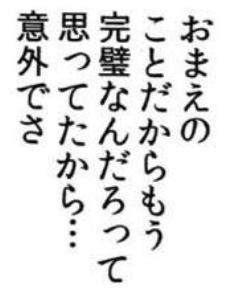 おまえの
ことだからもう
完璧なんだろって
思ってたから…
意外でさ